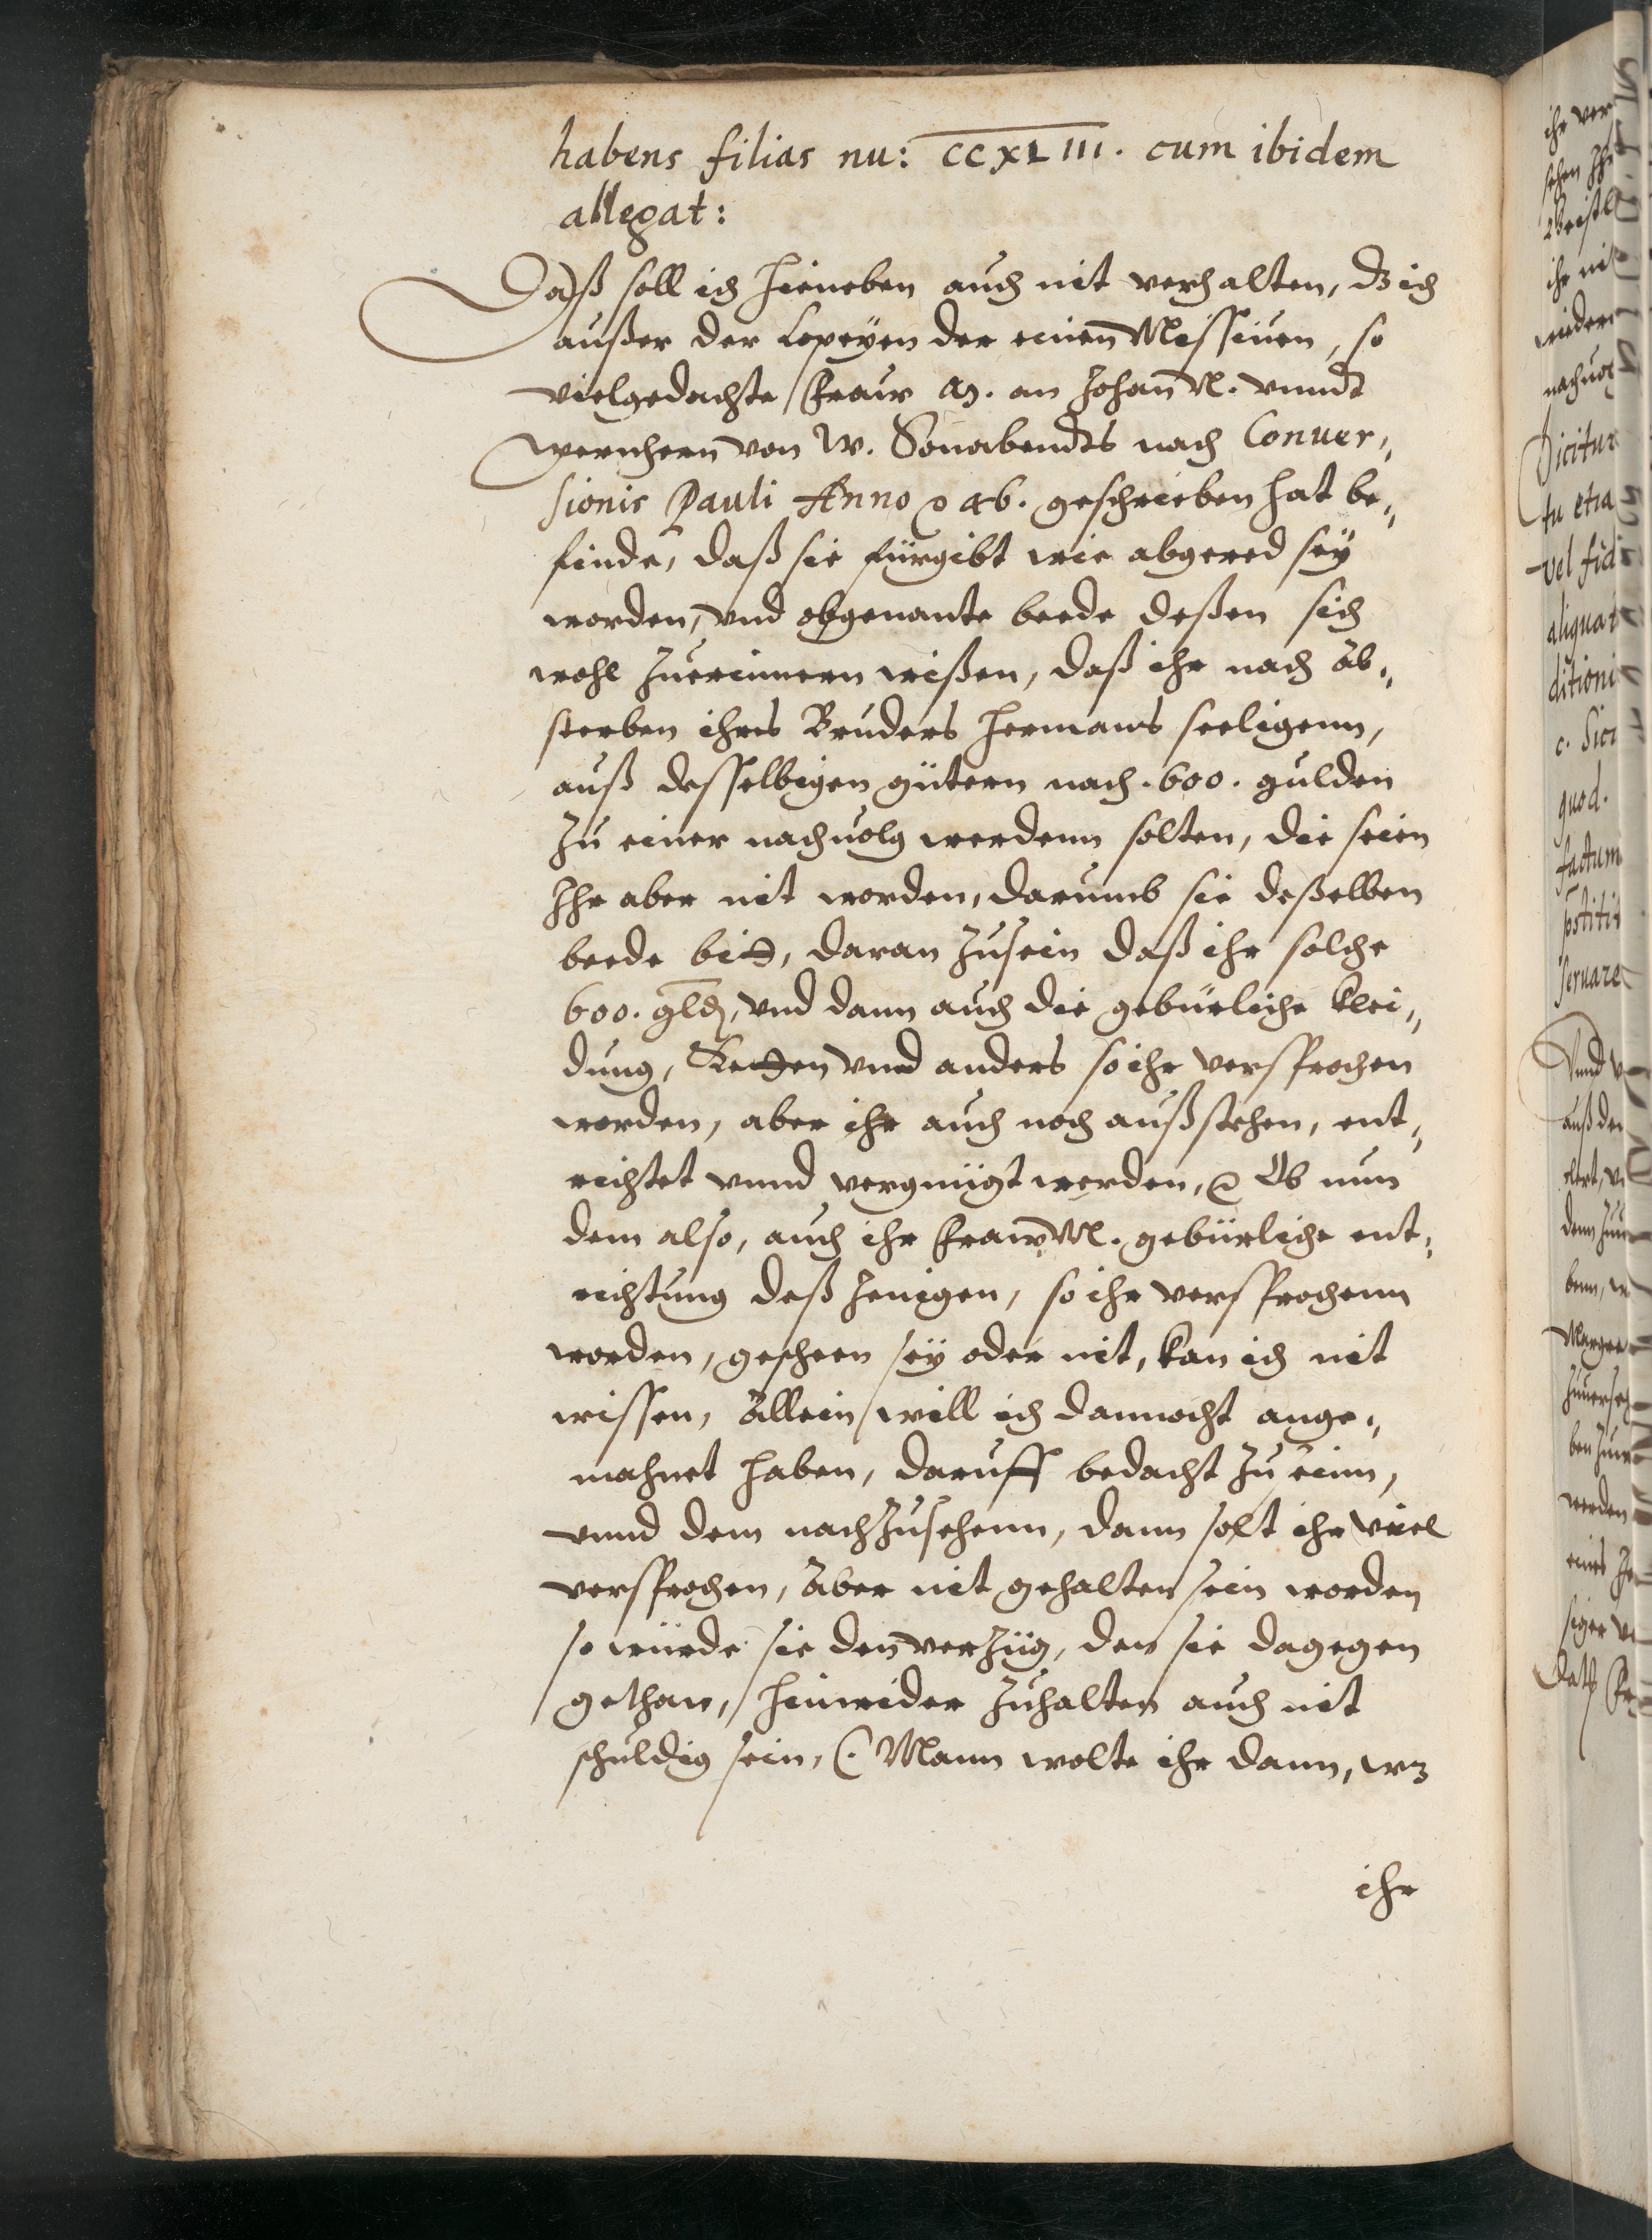 habens filias nu: CCXLIII. cum ibidem
allegat:
Daß soll ich hieneben auch nit verhalten, dz ich
außer der Copeyen der einen Missiuen, so
vielgedachte Fraw M. an Johan N. vnnd
Wernhern von W. Sonabendts nach Conuer„
sionis Pauli Anno 46. geschrieben hat be„
finde, daß sie fürgibt wie abgered sey
worden, vnd obgenante beede deßen sich
wohl zuerinnern wißen, daß ihr nach Ab„
sterben ihres Bruders Hermans seeligenn,
auß desselbigen gütern noch .600. gulden
zu einer nachuolg werdenn solten, die seien
Ihr aber nit worden, darumb sie deßelben
beede bitt, daran zusein daß ihr solche
600. gld, vnd dann auch die gebürliche Klei„
dung, Ketten vnd anders so ihr versprochen
worden, aber ihr auch noch außstehen, ent„
richtet vnnd vergnügt werden, Ob nun
dem also, auch ihr Fraw M. gebürliche ent„
richtung deß Jenigen, so ihr versprochenn
worden, gescheen sey oder nit, kan ich nit
wissen, Allein will ich dannocht ange„
mahnet haben, daruff bedacht zu seinn,
vnnd dem nachzusehenn, dann solt ihr viel
versprochen, Aber nit gehalten sein worden
so würde sie den verzüg, den sie dagegen
gethan, hinwider zuhalten auch nit
schuldig sein, (. Mann wolte ihr dann, wz
ihr